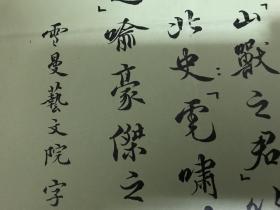 山獸之君」
北史：「虎嘯
」喻豪傑之
雲曼藝文院字